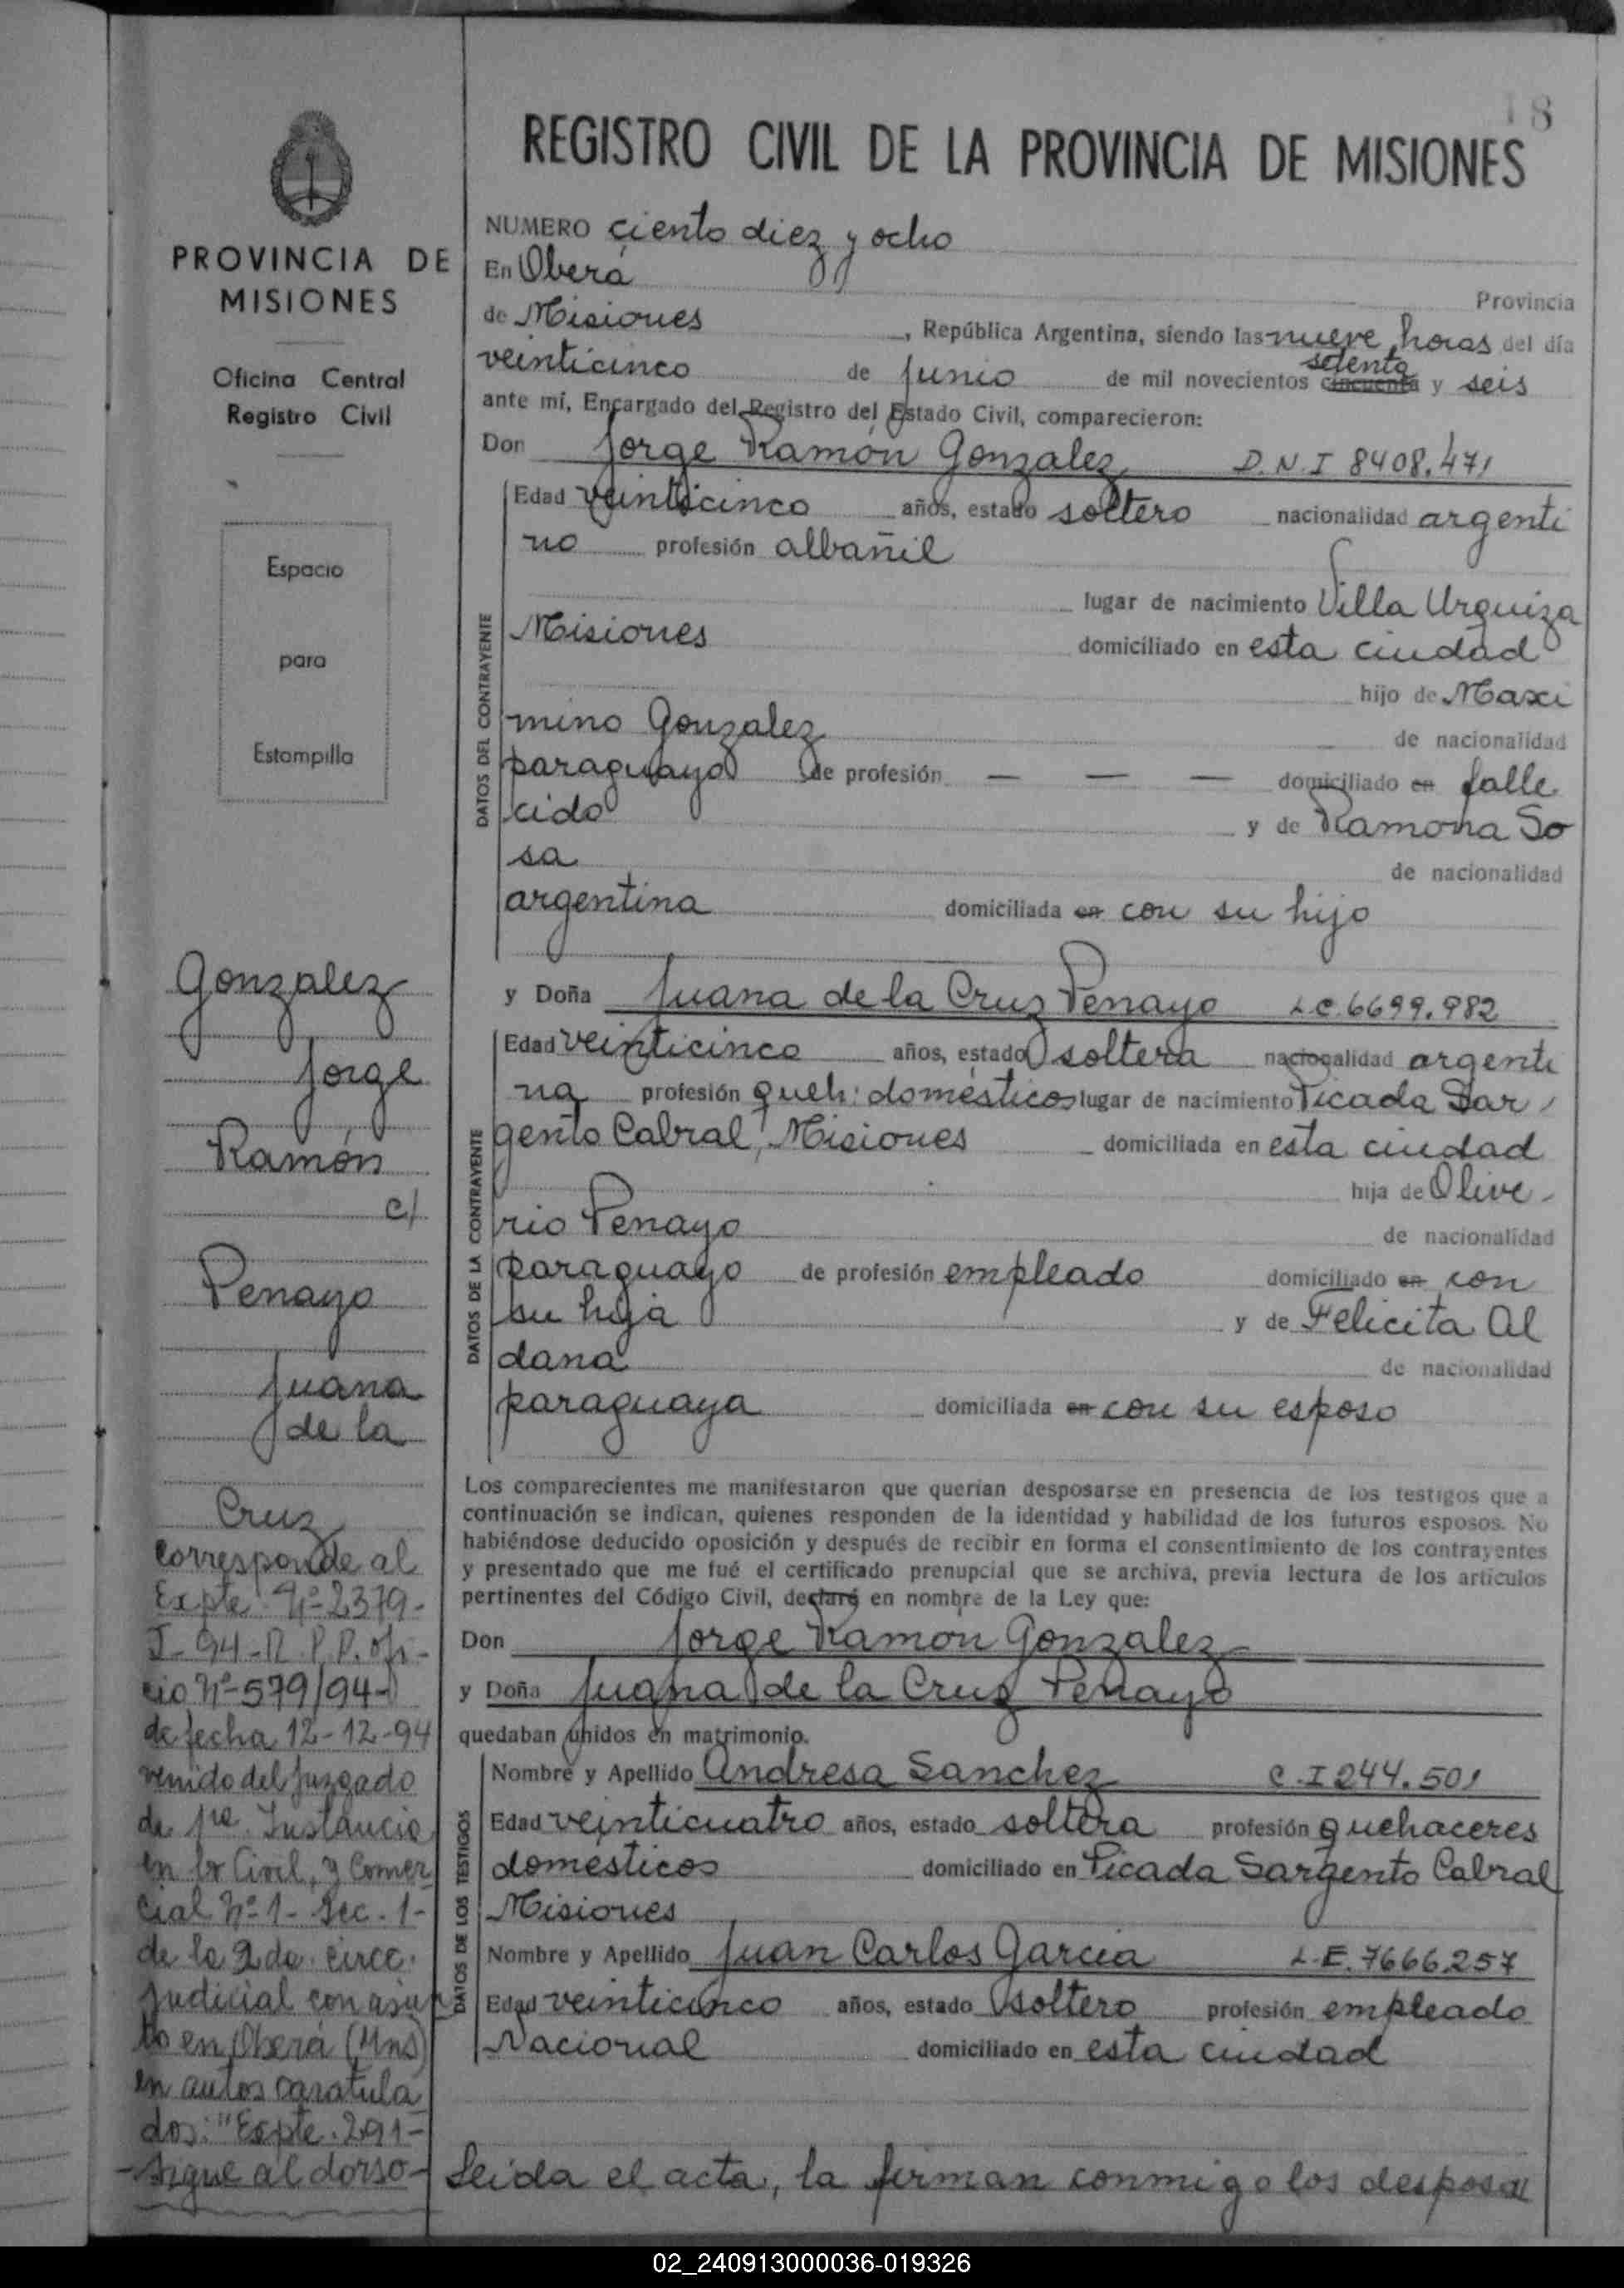 18
REGISTRO CIVIL DE LA PROVINCIA DE MISIONES
PROVINCIA DE
MISIONES
Oficina Central
Registro Civil
Espacio
para
Estampilla
Gonzalez
Jorge
Ramón
c/
Penayo
Juana
de la
Cruz
Corresponde al
Expte Nº 2379-
J-94-R.P.P. Ofi-
cio Nº 579/94-
de fecha 12-12-94
venido del Juzgado
de 1ra. Instancia
en lo Civil, y Comer
cial Nº 1- Sec. 1-
de la 2da. circc.
Judicial con asien
to en Oberá (Mns)
en autos caratula
dos: "Expte. 291-
-Sigue al dorso-
NUMERO ciento diez y ocho
En Oberá
Provincia
de Misiones, República Argentina, siendo las nueve horas del día
setenta
veinticinco de Junio de mil novecientos cincuenta y seis
ante mí, Encargado del Registro del Estado Civil, comparecieron:
Don Jorge Ramón Gonzalez D.N.I 8408.471
DATOS DEL CONTRAYENTE
Edad veinticinco años, estado soltero nacionalidad argenti
no profesión albañil
lugar de nacimiento Villa Urquiza
Misiones domiciliado en esta ciudad
hijo de Maxi
mino Gonzalez de nacionalidad
paraguayo de profesión — — — domiciliado en falle
cido y de Ramona So
sa de nacionalidad
argentina domiciliada en con su hijo
y Doña Juana de la Cruz Penayo L.C. 6699.982
DATOS DE LA CONTRAYENTE
Edad veinticinco años, estado soltera nacionalidad argenti
na profesión queh: domésticos lugar de nacimiento Picada Sar
gento Cabral, Misiones domiciliada en esta ciudad
hija de Olive-
rio Penayo de nacionalidad
paraguayo de profesión empleado domiciliado en con
su hija y de Felicita Al
dana de nacionalidad
paraguaya domiciliada en con su esposo
Los comparecientes me manifestaron que querían desposarse en presencia de los testigos que a
continuación se indican, quienes responden de la identidad y habilidad de los futuros esposos. No
habiéndose deducido oposición y después de recibir en forma el consentimiento de los contrayentes
y presentado que me fué el certificado prenupcial que se archiva, previa lectura de los artículos
pertinentes del Código Civil, declaré en nombre de la Ley que:
Don Jorge Ramon Gonzalez
y Doña Juana de la Cruz Penayo
quedaban unidos en matrimonio.
DATOS DE LOS TESTIGOS
Nombre y Apellido Andresa Sanchez C.I 244.501
Edad veinticuatro años, estado soltera profesión quehaceres
domésticos domiciliado en Picada Sargento Cabral
Misiones
Nombre y Apellido Juan Carlos Garcia L.E. 7666.257
Edad veinticinco años, estado soltero profesión empleado
Nacional domiciliado en esta ciudad
Leida el acta, la firman conmigo los desposa
02_240913000036-019326